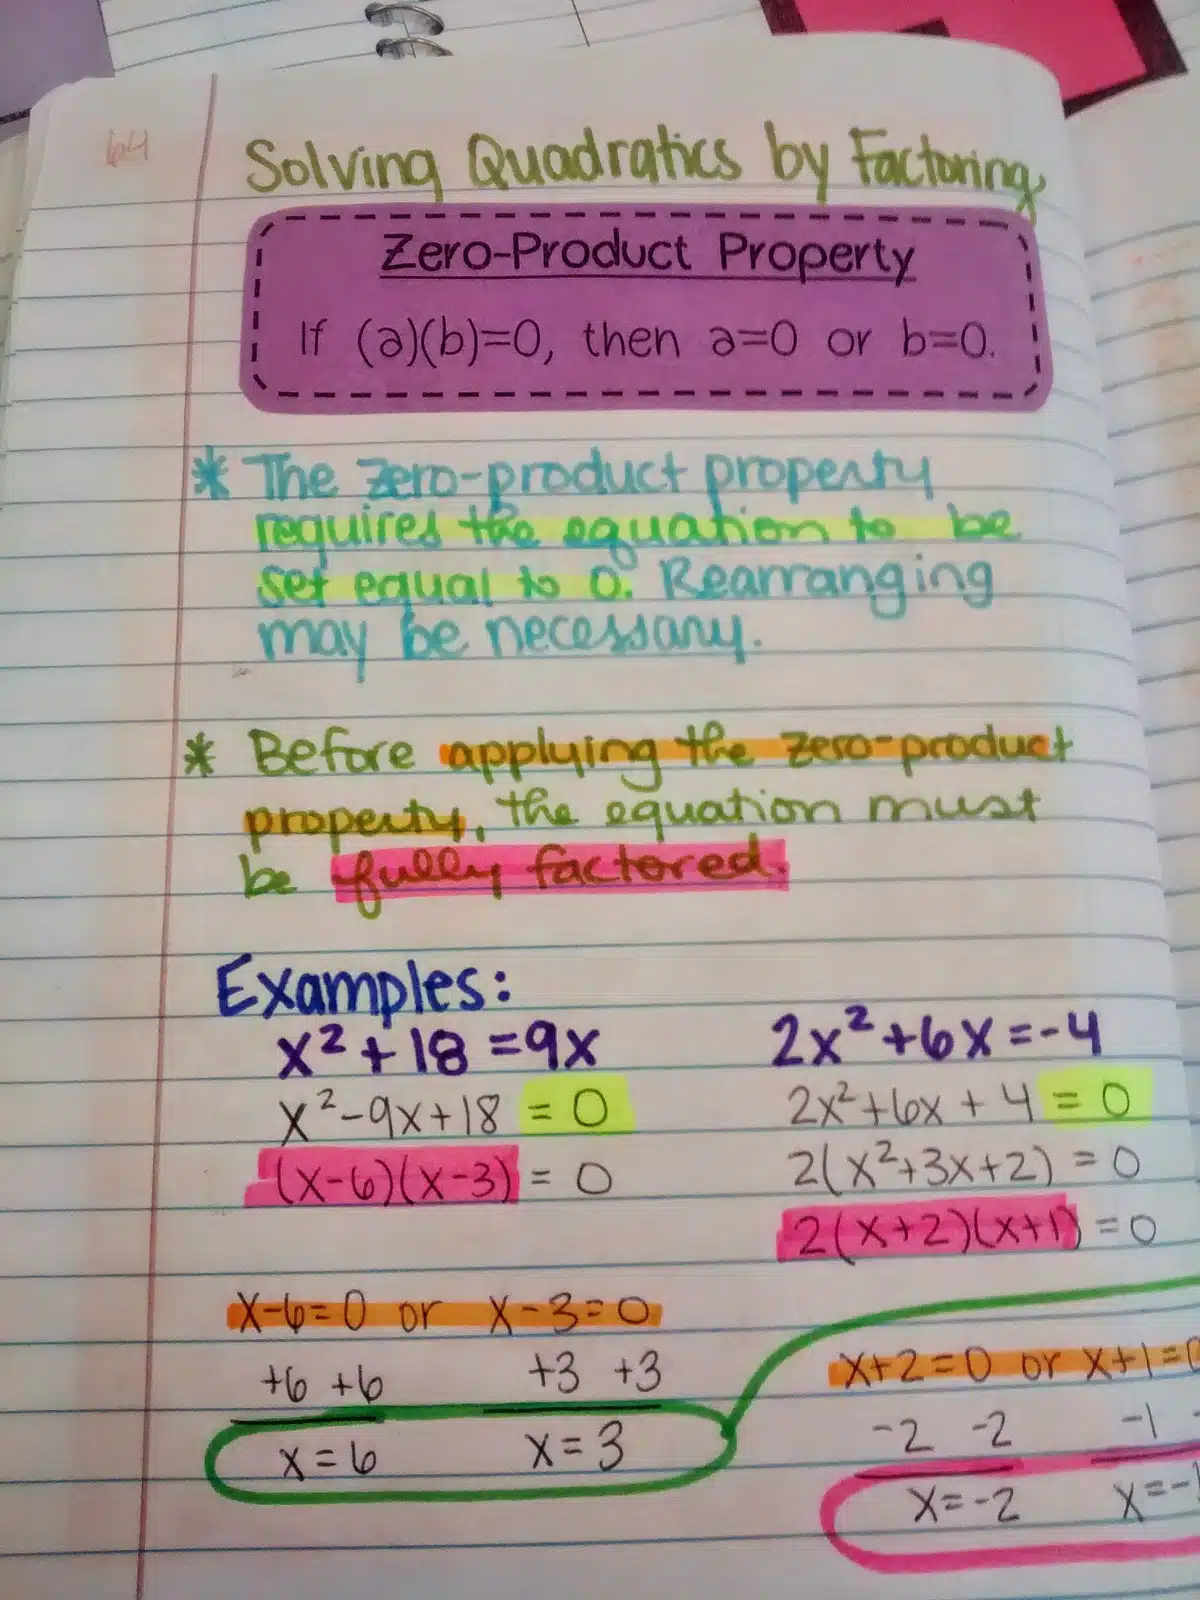 64
Solving Quadratics by Factoring
Zero-Product Property
If (a)(b)=0, then a=0 or b=0.
* The zero-product property
requires the equation to be
set equal to 0. Rearranging
may be necessary.
* Before applying the zero-product
property, the equation must
be fully factored.
Examples:
x²+18=9x
x²-9x+18=0
(x-6)(x-3)=0
x-6=0 or x-3=0
+6 +6 +3 +3
x=6 x=3
2x²+6x=-4
2x²+6x+4=0
2(x²+3x+2)=0
2(x+2)(x+1)=0
x+2=0 or x+1=0
-2 -2 -1 -
x=-2 x=-1